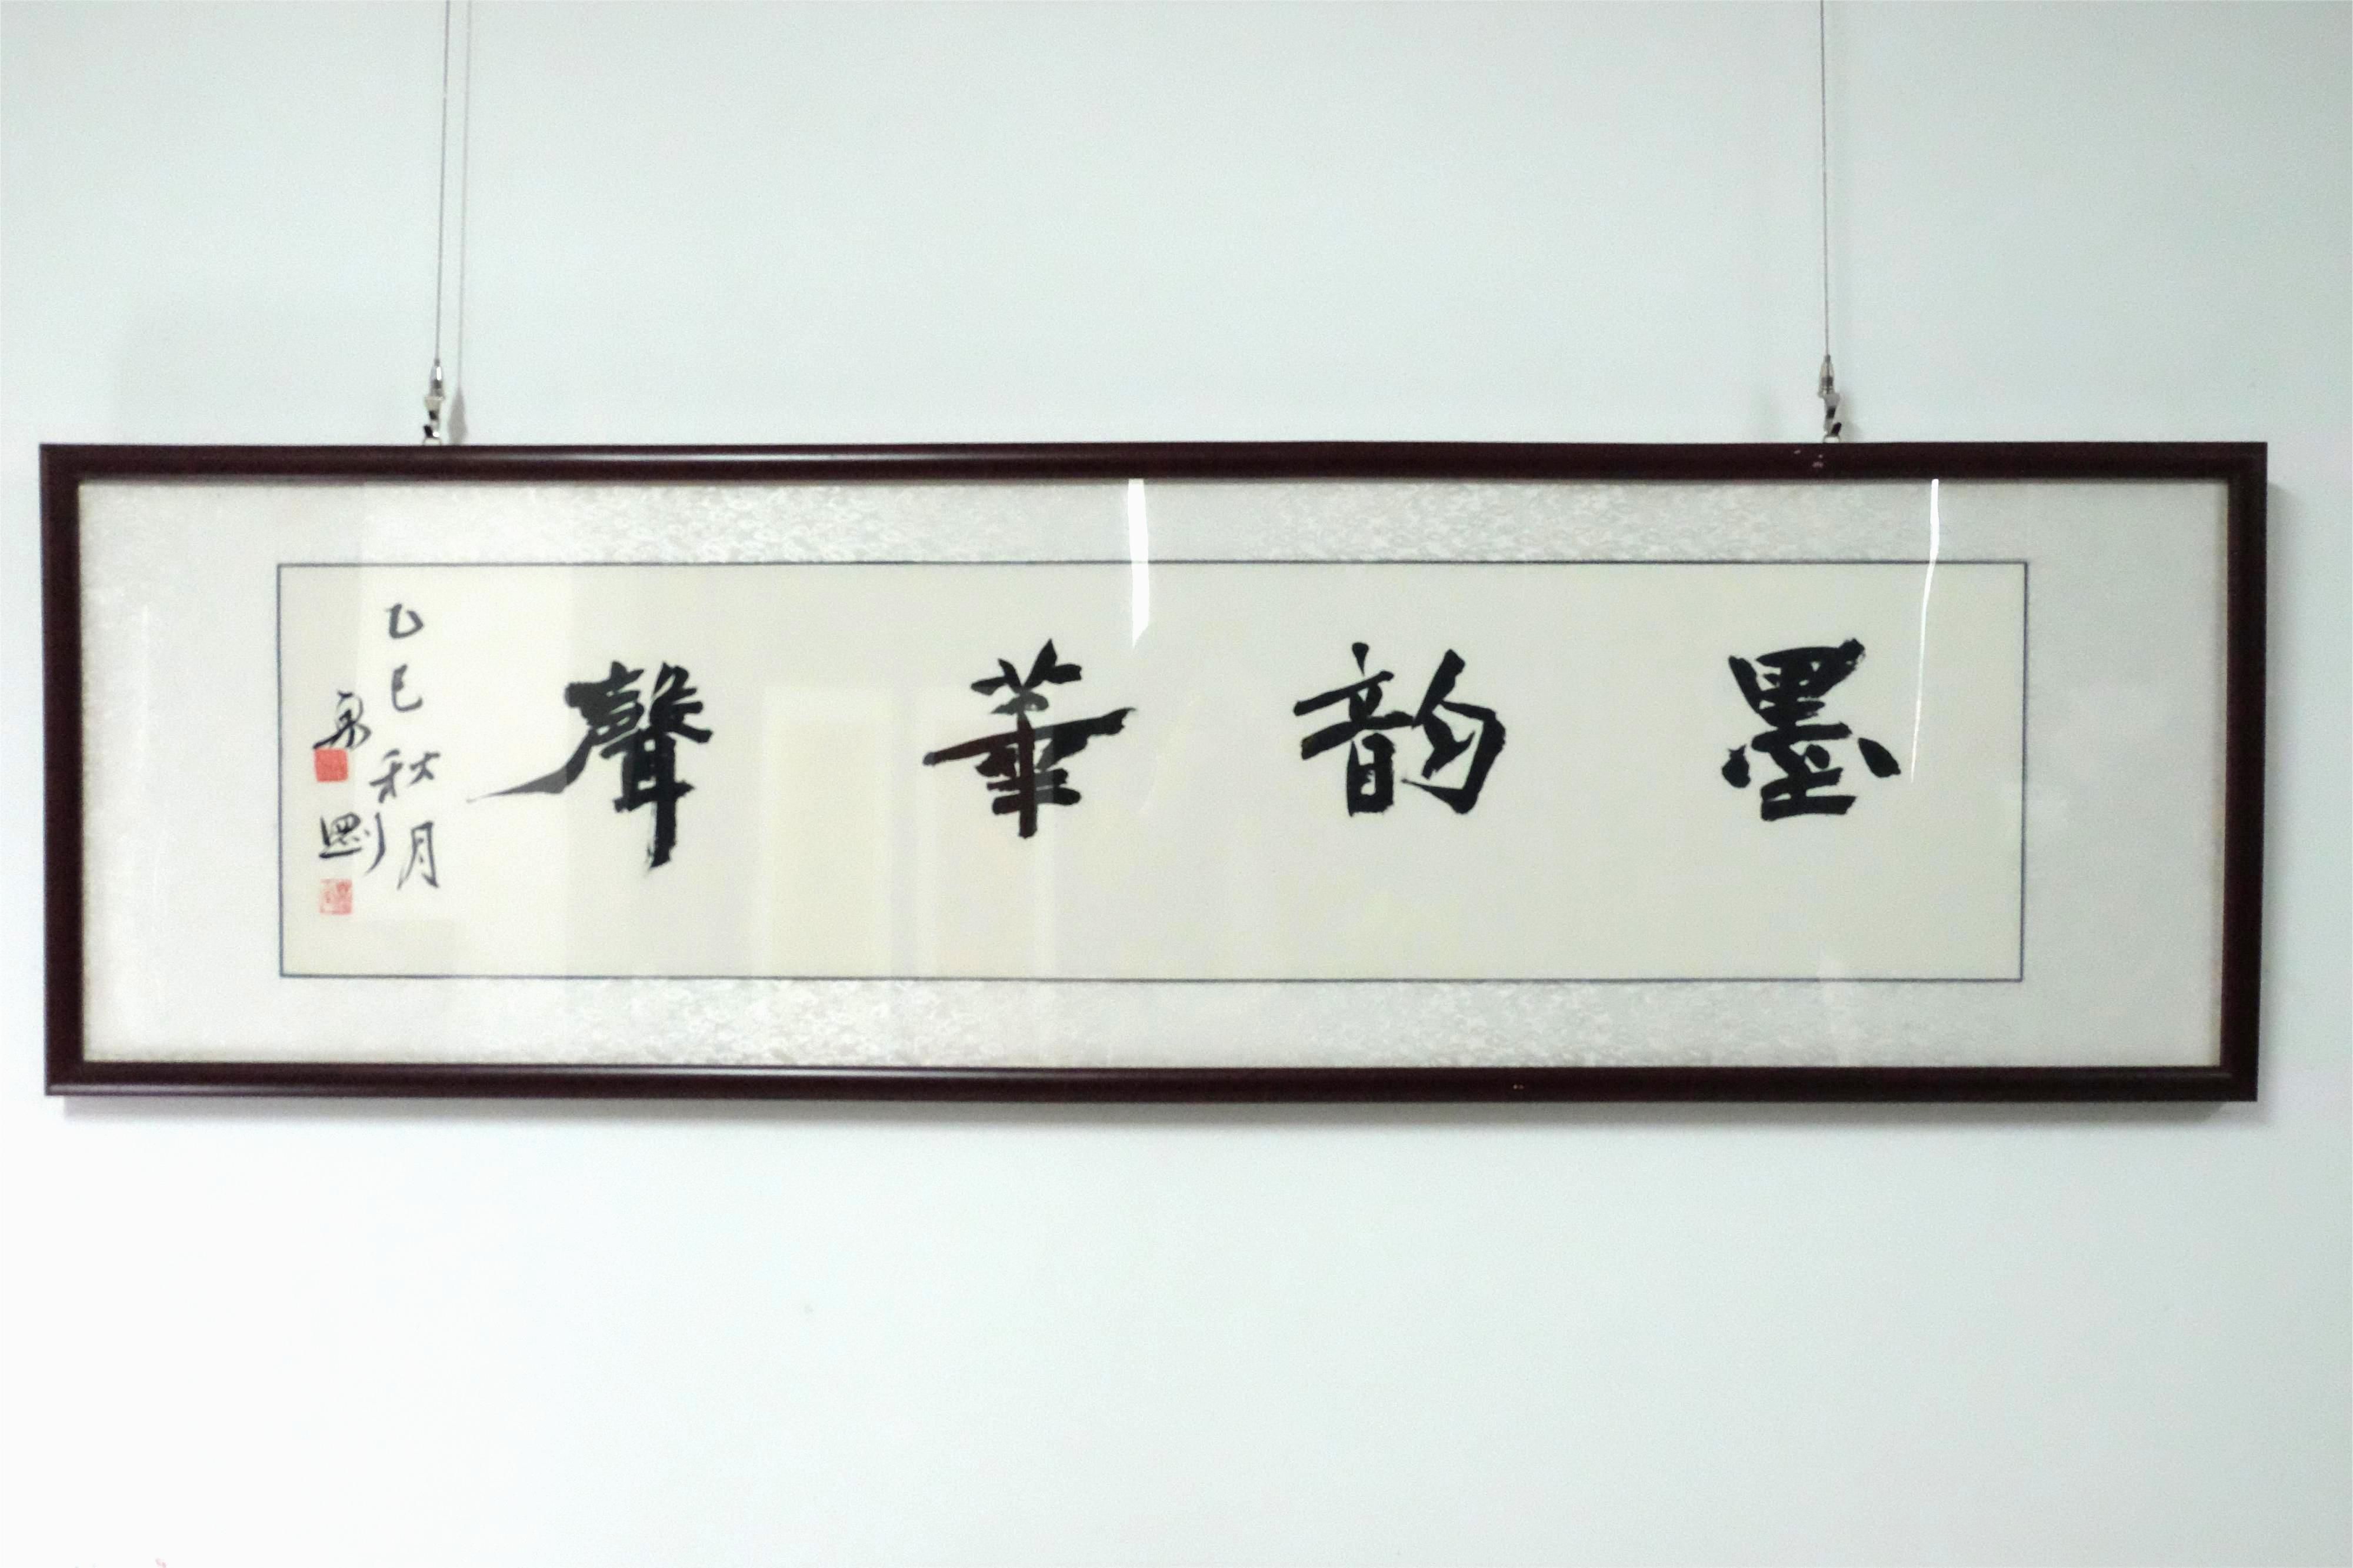 墨韵華聲
乙巳秋月